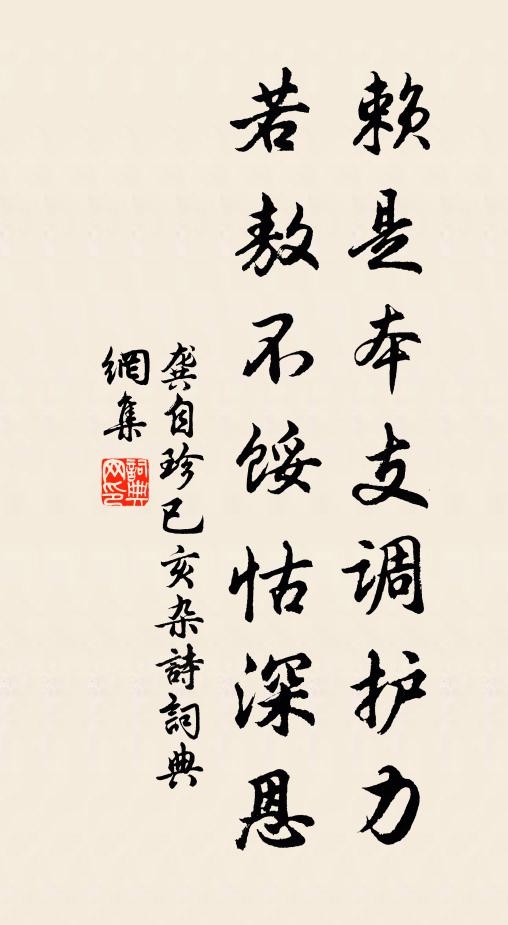 赖是本支调护力
若敖不馁怙深恩
龚自珍己亥杂詩詞典
網集
詞典
网印